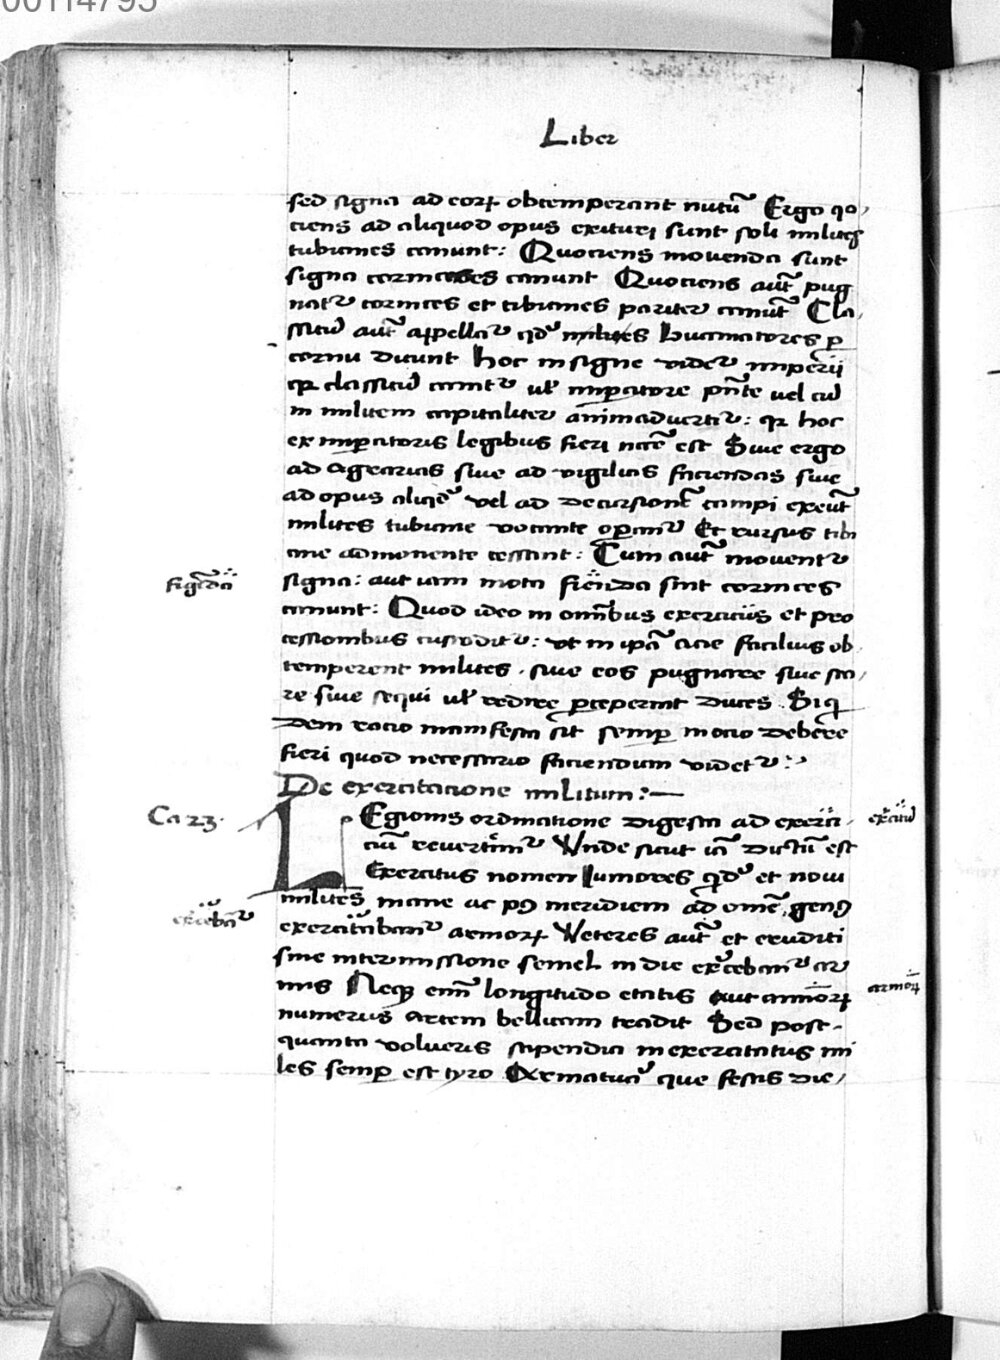 00114795
Liber
sed signa ad eorꝝ obtemperant nutū Ergo qo,
ciens ad aliquod opus exituri sunt soli milites
tubicines canunt: Quociens movenda sunt
signa cornices canunt Quociens aut̄ pug
nat᷑ cornices et tubicines pariter canūt Cla,
ssicū aut̄ appellat᷑ qd᷑ milites bucinatores p̲
cornu dicunt hoc insigne videt᷑ imperii
qꝛ classicū canit᷑ vl̄ impatore pn̄te vel cū
in militem capitaliter animadvertit᷑: qꝛ hoc
ex impatoris legibus fieri nccē est Sive ergo
ad agrarias sive ad vigilias faciendas sive
ad opus aliqd᷑ vel ad decursionē campi exeūt
milites tubicine vocante opant᷑ Et rursus tibi
cine admonente cessant: Cum aut̄ movent᷑
signa: aut iam mota fiēnda sint cornices
canunt: Quod ideo in omībus exerciciis et pro
cessionibus custodit᷑: vt in ip̄a acie facilius ob
temperent milites. sive eos pugnare sive sta,
re sive sequi vl̄ redire p̲ceperint duces Siq̲
dem racio manifesta sit semp̲ in ocio debere
fieri quod necessario faciendum videt᷑:
De exercitacione militum:—
Ca 23.
LEgionis ordinatione digesta ad exerci
ciū revertim᷑ Unde sicut iā dictū est
Exercitus nomen Iuniores qd᷑ et novi
milites mane ac pꝰ meridiem ad omē genꝰ
exercitabant᷑ armorꝝ Veteres aut̄ et eruditi
sine intermissione semel in die exercebant᷑ ar
mis Neqꝫ enī longitudo etatis aut annorꝝ
numerus artem bellicam tradit Sed post-
quanta volueris stipendia inexercitatus mi
les semp̲ est tyro Armatura que festis die,
figēda
exercitū
excebāt᷑
armorꝝ